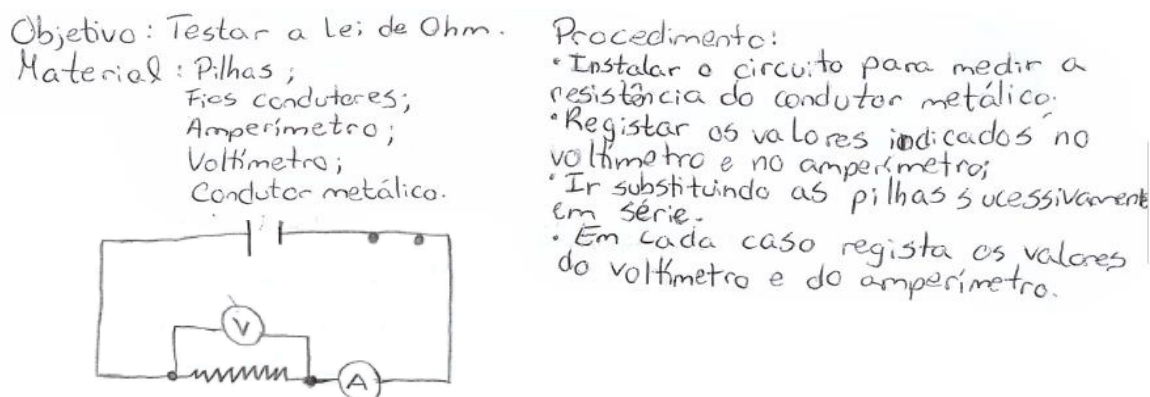 Objetivo: Testar a Lei de Ohm.
Material: Pilhas;
Fios condutores;
Amperímetro;
Voltímetro;
Condutor metálico.
V
A
Procedimento:
• Instalar o circuito para medir a
resistência do condutor metálico.
• Registar os valores indicados no
voltímetro e no amperímetro;
• Ir substituindo as pilhas sucessivament
em série.
• Em cada caso regista os valores
do voltímetro e do amperímetro.